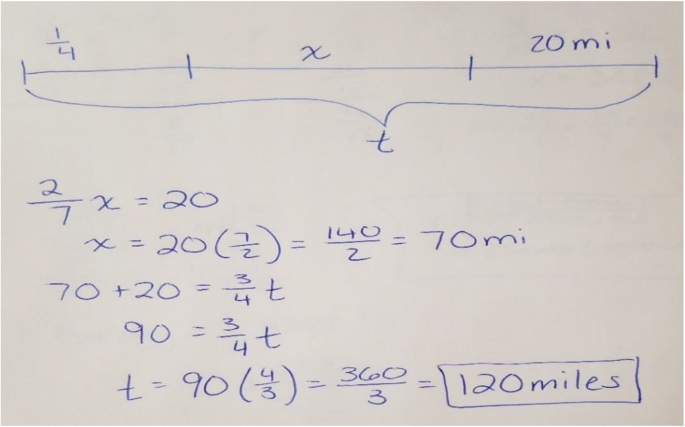 1/4 x 20mi
t
2/7 x = 20
x = 20(7/2) = 140/2 = 70mi
70 + 20 = 3/4 t
90 = 3/4 t
t = 90(4/3) = 360/3 = 120miles